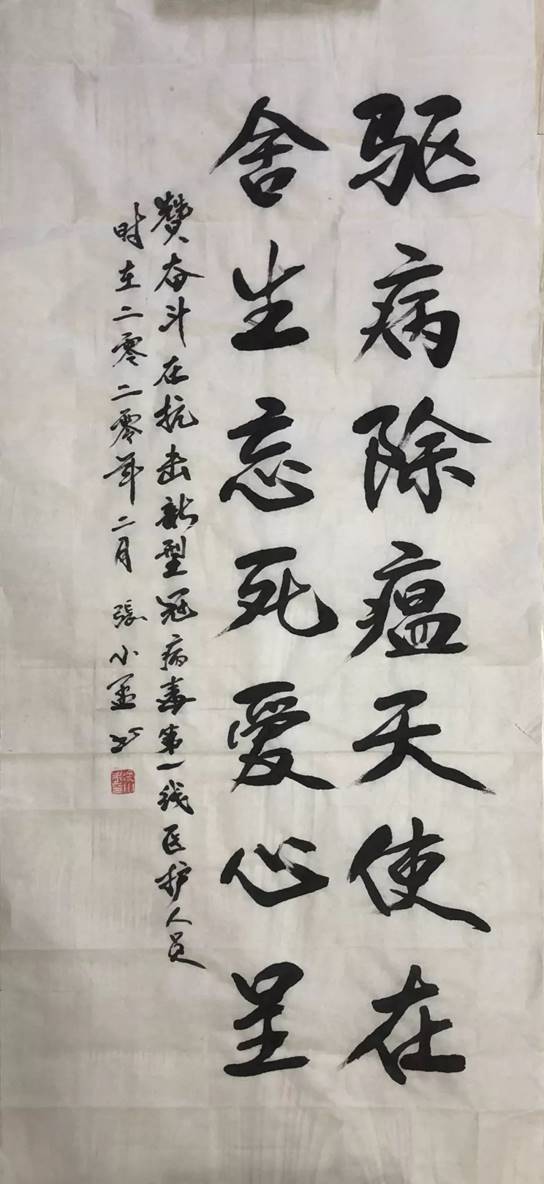 驱病除瘟天使在
舍生忘死愛心呈
赞奋斗在抗击新型冠病毒第一线医护人员
时在二零二零年二月 張小孟书